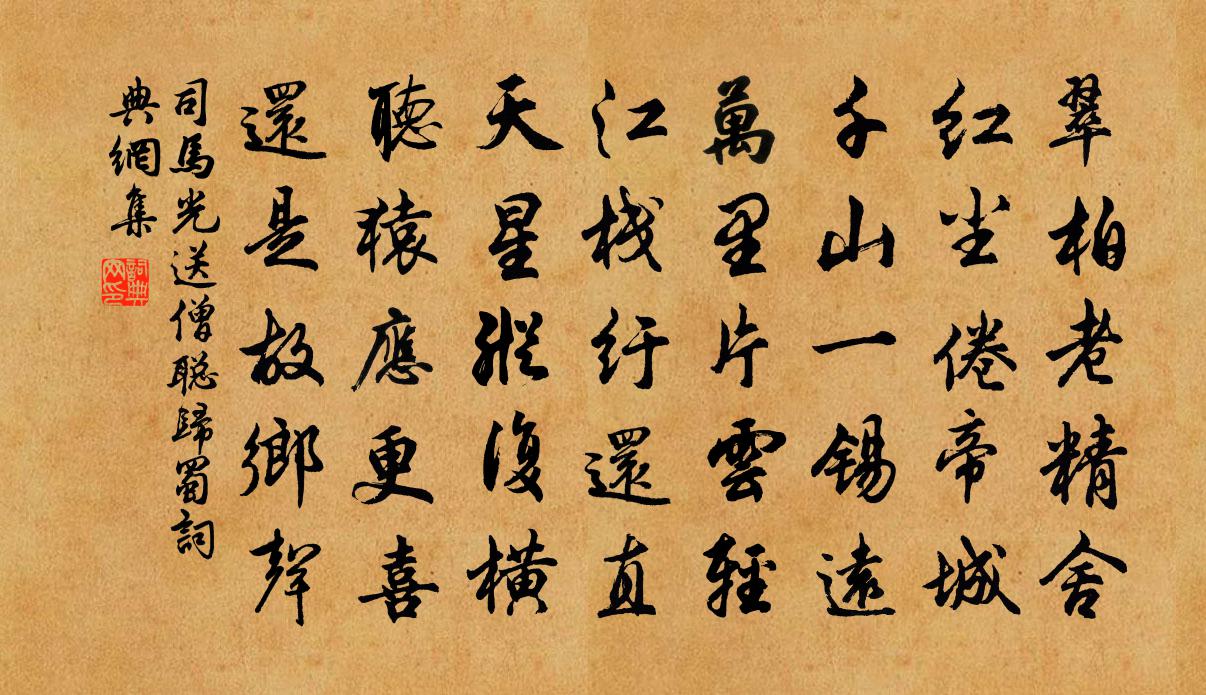 翠柏老精舍
紅塵倦帝城
千山一錫遠
萬里片雲輕
江棧紆還直
天星縱復橫
聽猿應更喜
還是故鄉聲
司馬光送僧聰歸蜀詞
典網集
詞典網印